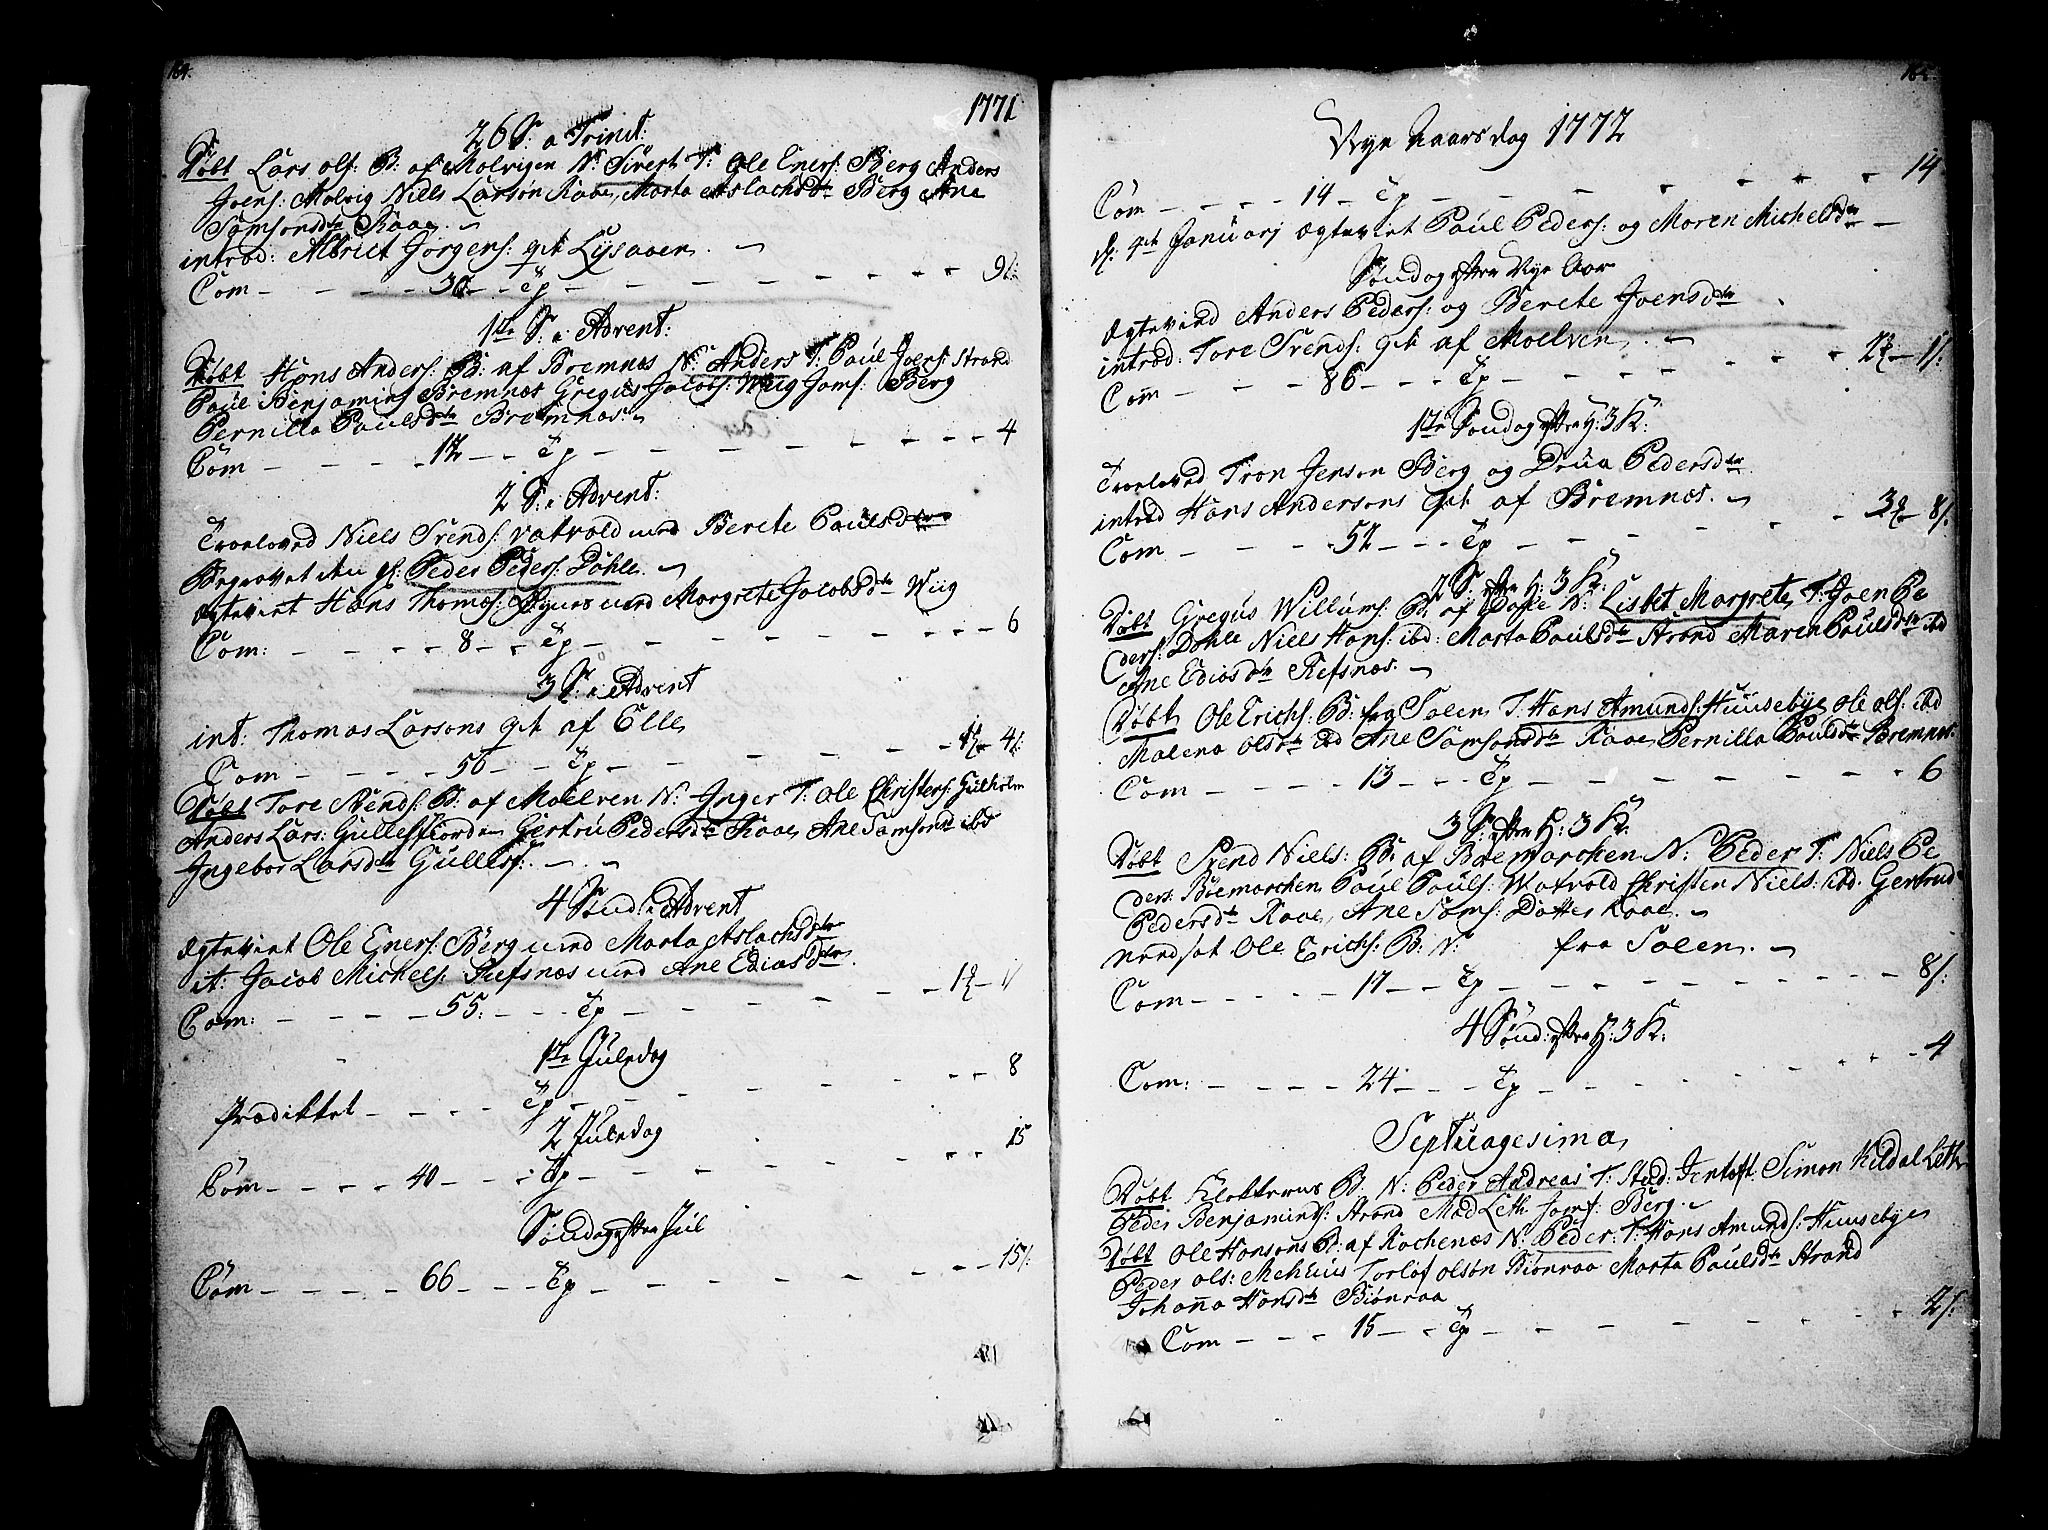 164.
1771
26 S: a Trinit:
Døbt Lars Ols: B: af Molvigen N: Sivert T: Ole Eners: Berg Anders
Joens: Molvig Niels Larson Kaae, Marta Aslachsdtr Berg Ane
Samsonsdtr Kaae.
introd: Albrict Jørgens: qvi Lysaaen.
Com - - - - 30 - - Tp - - - - - - - - 9 /:
1te S: i Advent:
Døbt Hans Anders: B: af Bremnæs N: Anders T: Paul Joens: Strand
Paul Benjamins Bremnæs Gregus Jacobs: Wiig Jomf: Berg
Pernilla Paulsdtr Bremnæs.
Com - - - - 12 - - Tp - - - - - - - - 4
2 S: i Advent:
Troeloved Niels Svends: Vatvold med Berete Paulsdtr
Begravet den sl: Peder Peders: Døhle.
Ægtevirt Hans Thomæs: med Margrete Jacobsdtr Wiig
Com: - - - - 8 - - Tp - - - - - - - - 6
3 S: i Advent
int: Thomas Larsons qvi af Elle
Com - - - - 56 - - Tp - - - - - - - 4 /:
Døbt Tore Svends: B: af Moelven N: Inger T: Ole Christers: Gulholm
Anders Lars: Gullesfiorden Gertru Pedersdtr Kaae, Ane Samsonsd ibd
Ingebor Larsdtr Gullesf:
4 Sønd: i Advent
Ægtevirt Ole Eners: Berg med Marta Aslachsdtr
it: Jacob Michels: Refsnæs med Ane Ediasdtr.
Com: - - - - 55: - - - Tp - - - - - - -
1te Juledag
Prædikket - - - - Tp - - - - - - - 8
2 Juledag
Com - - - - 40 - - - Tp - - - - - - - 15
Søndag efter Jul
Com - - - - 66 - - - Tp - - - - - - - 15 /:
165.
Nye Aarsdag 1772
Com - - - - 14 - Tp - - - - - - - 14
d: 4de Januarj Ægtevirt Paul Peders: og Maren Michelsdtr
Søndag efter Nye Aar
Ægtevied Anders Peders: og Berete Joensdtr
introd: Tore Svends: qvi af Moelven.
Com - - - 86 - - - Tp - - - - - - -
1te Søndag efter H: 3 K:
Troeloved Tron Jenson Berg og Drua Pedersdtr
introd Hans Andersons qvi af Bremnæs.
Com - - - 52 - - - Tp - - - - - - - 8 /:
2 S: efter H: 3 K:
Døbt Gregus Willums: B: af Døhle N: Lisbet Margrete, T: Joen Pe
ders: Døhle Niels Hans: ibd: Marta Paulsdtr Strand Maren Paulsdtr ibd
Ane Ediasdtr Refsnæs.
Døbt Ole Erichs: B: fra Søeen T: Hans Amunds: Huusebye Ole Ols: ibd
Malena Olsdtr ibd Ane Samsonsdtr Kaae, Pernilla Paulsdtr Bremnæs:
Com - - - - 13 - - - Tp - - - - - - - 6
3 S: efter H: 3 K:
Døbt Svend Niels: B: af Bøemarchen N: Peder T: Niels Pe
ders: Bøemarchen Paul Pauls: Watvold Christen Niels: ibd. Gertrud
Pedersdtr Kaae, Ane Sams: Datter Kaae.
nordsat Ole Erichs: B: N: fra Søeen.
Com - - - - 17 - - Tp - - - - - - - 8 /:
4 Sønd: efter H: 3 K:
Com: - - - - 24 - - - Tp - - - - - - - 4
Septuagesima
Døbt Klokkerens B. N: Peder Andreas T: Stud. Jentoft Simon Kildal Leth
Peder Benjamins: Strand Mad Leth Jomf Berg.
Døbt Ole Hansons B: af Kochenæs N: Peder: T: Hans Amunds: Huusebye
Peder Ols: Mehuus Torlof Olsøn Biønraa Marta Paulsdtr Strand
Johanna Hansdtr Biønraa
Com - - - 15 - - Tp - - - - - - - 2 /: